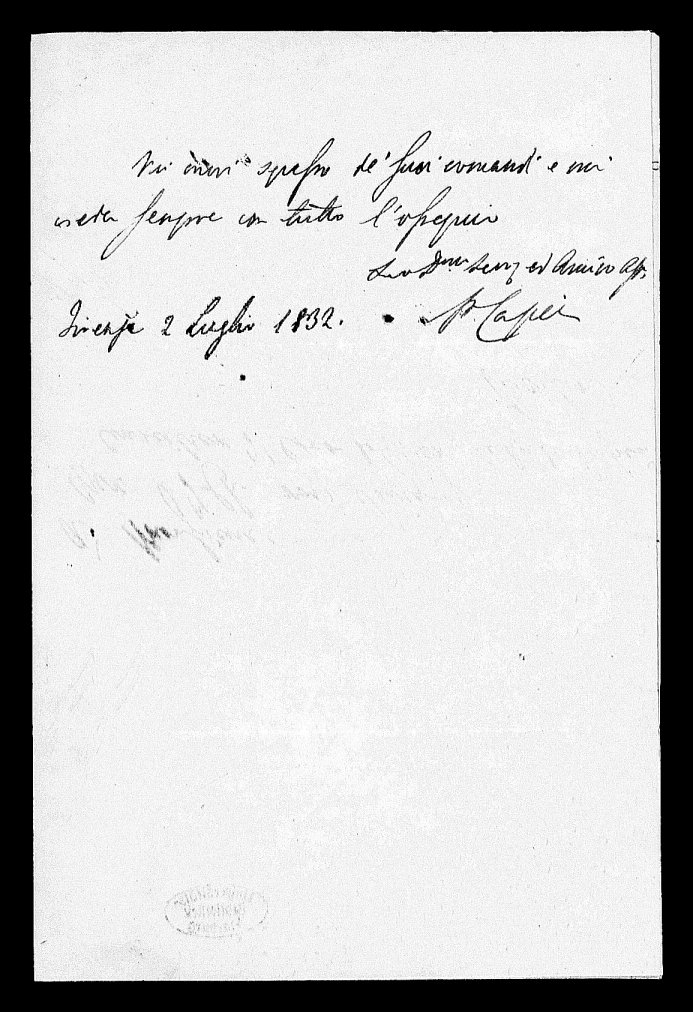 Mi onori spesso de' suoi comandi e mi
creda sempre con tutto l'ossequio
Suo Dmo Serv ed Amico
Firenze 2 Luglio 1832. P. Capei